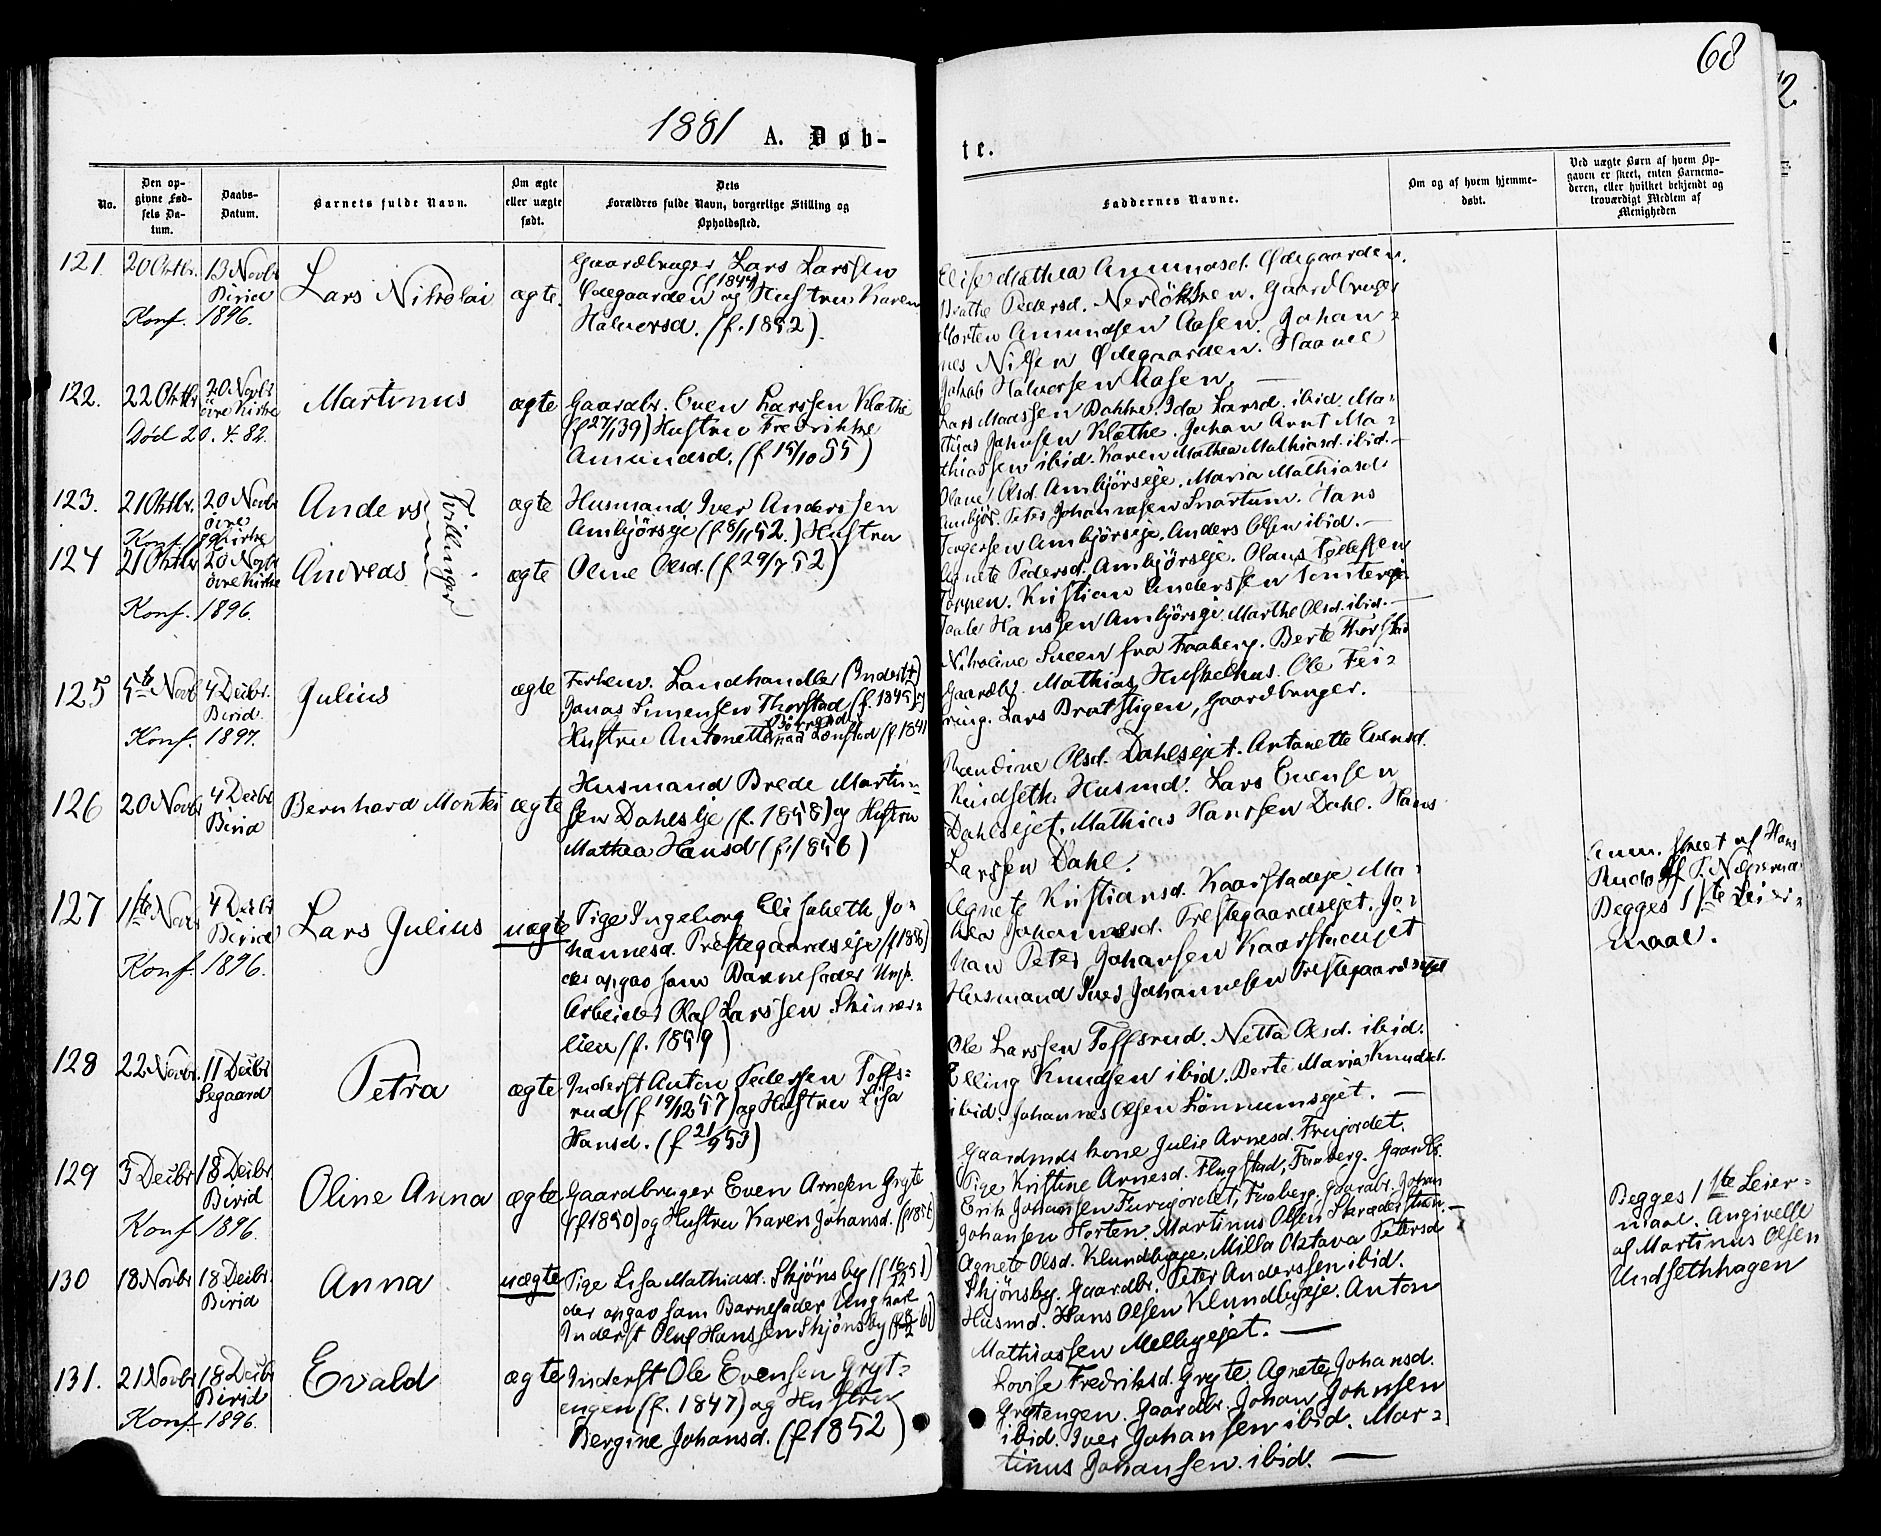 68
1881 A. Døb-
te.
No.
Den op-
givne Fød-
sels Da-
tum.
Daabs-
Datum.
Barnets fulde Navn.
Om ægte
eller uægte
født.
Dets
Forældres fulde Navn, borgerlige Stilling og
Opholdssted.
Faddernes Navne.
Om og af hvem hjemme-
døbt.
Ved uægte Børn af hvem Op-
gaven er skeet, enten Barnemo-
deren, eller hvilket bekjendt og
troværdigt Medlem af
Menigheden
121. 20 Oktbr. 13 Novbr
Birid
Konf. 1896.
Lars Nikolai
ægte.
Gaardbruger Lars Larssen
(f 1844)
Ødegaarden og Hustru Karen
Halvorsd. (f. 1852).
Elise Mathea Amundsd. Ødegaarden.
Pedersd. Nerløkken. Gaardbruger
Morten Amundsen Aasen. Johan-
nes Nilsen Ødegaarden.
Jakob Halvorsen Aasen.
122. 22 Oktbr 20 Novbr
övre Kirke
Död 20. 4. 82.
Martinus
ægte
Gaardbr. Even Larssen Klæthe
(f 27/1 39) Hustru Fredrikke
Amundsd. (f 15/10 55)
Lars Madssen Dahlen. Ida Larsd. ibid. Ma-
thias Jahnsen Klæthe. Johan Arnt Ma-
thiassen ibid. Karen Mathea Mathiasd. ibid.
123. 21 Oktbr. 20 Novbr
övre
Kirke
Anders
Tvillinger
ægte
Husmand Iver Anderssen
Ambjörseje (f 8/11 52.) Hustru
Oline Olsd. (f 29/7 52)
Olsd. Ambjörseje. Maria Mathiasd.
Ambjör. Peter Johannesen Snartum. Hans
Torgersen Ambjörseje. Anders Olsen ibid.
124 21 Oktbr 20 Novbr
övre Kirke
Konf. 1896.
Andreas
ægte
Agnete Pedersd. Ambjörseje. Olaus
Kristian Anderssen
Hanssen Ambjörseje. Marthe Olsd. ibid.
125 5te Novb 4 Decbr.
Birid
Konf. 1897.
Julius
ægte
Forhenv. Landhandler (Inderst)
Jonas Simensen Thorstad (f. 1845) og
Hustru Antonette Lönstad (f 1841
Nikoline Sveen fra Faaberg. Berte Thorstad
Gaardbr. Mathias Huskelhus. Ole Fei-
ring. Lars Bratstigen, Gaardbruger.
126 20 Novbr 4 Decbr
Birid
Bernhard Montes
ægte
Husmand Brede Martin-
sen Dahlseje (f. 1858) og Hustru
Mathea Hansd (f. 1856)
Olsd. Dahlsejet. Antonette Evensd.
Rindseth. Husmd. Lars Evensen
Dahlsejet. Mathias Hanssen Dahl. Hans
Larssen Dahl.
127 1ste Novbr 4 Decbr
Birid
Konf. 1896.
Lars Julius
uægte
Pige Ingeborg Elisabeth Jo-
hannesd. Prestegaardseje (f. 1856)
der opgav som Barnefader Ungk.
Arbeider Olaf Larssen Skinner-
lien (f. 1859)
Agnete Kristiansd. Kaarstadeje. Ma-
thea Johannesd. Prestegaardsejet. Jo-
han Peter Johansen Kaarstadejet
Husmand Iver Johannesen Prestegaardsejet
Anm. skeet af Hans
Rudolf P. Nægsrud
Begges 1ste Leier-
maal.
128 22 Novbr. 11 Decbr
Segaard
Petra
ægte
Inderst Anton Pedersen Toffs-
rud (f 19/12 57) og Hustru Lisa
Hansd. (f 21/9 53)
Ole Larssen Toffsrud. Netta Olsd. ibid.
Elling Knudsen ibid. Berte Maria Knudsd.
ibid. Johannes Olsen Lönnumsejet.
129 3 Decbr 18 Decbr
Birid
Konf 1896.
Oline Anna
ægte
Gaardbruger Even Arnesen Gryte
(f 1850) og Hustru Karen Johansd. (f 1856)
Gaardmds kone Julie Arnesd. Furjordet.
Pige Kristine Arnesd. Flugstad, Faaberg. Gaardbr.
Erik Johansen Furujordet, Faaberg. Gaardbr. Johan
Johansen Horten. Martinus Olsen Skræderstuen.
130 18 Novbr 18 Decbr.
Birid
Anna
uægte
Pige Lisa Mathiasd. Skjönsby (f 16/12 51)
der opgav som Barnefader Ungkarl
Inderst Oluf Hanssen Skjönsby
Agnete Olsd. Klundbyeje. Milla Oktava Petersd
Skjönsby. Gaardbr. Peter Anderssen ibid.
Husmd. Hans Olsen Klundbyeje. Anton
Mathiassen Melbyejet.
Begges 1ste Leier-
maal. Angivelse
af Martinus Olsen
Undsethhagen
131. 21 Novbr 18 Decbr
Birid
Konf 1896.
Evald
ægte
Inderst Ole Evensen Gryt-
engen (f. 1847) og Hustru
Bergine Johansd. (f 1852)
Lovise Fredriksd. Gryte. Agnete Johansd.
Grytengen. Gaardbr. Johan Johnsen
ibid. Iver Johansen ibid. Mar-
tinus Johansen ibid.